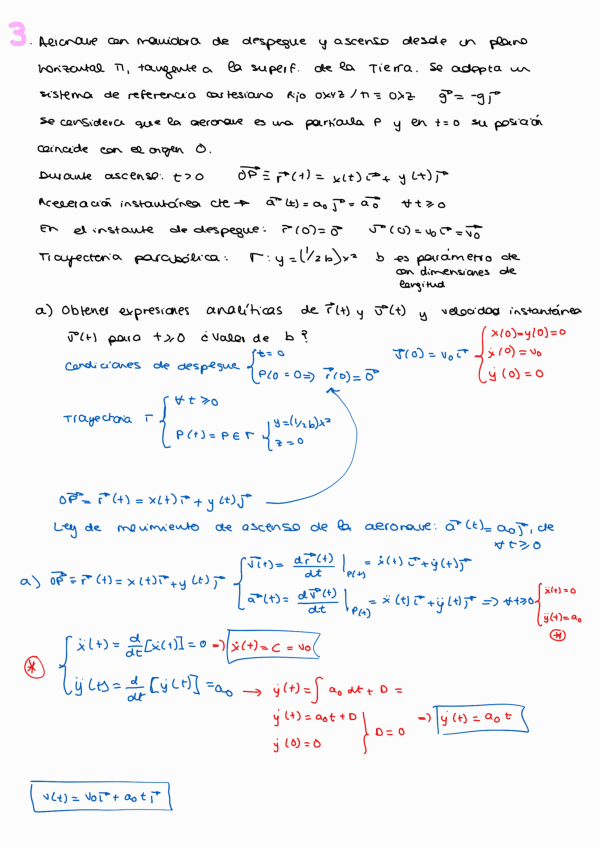 3. Aeronave con maniobra de despegue y ascenso desde un plano
horizontal π, tangente a la superf. de la Tierra. Se adopta un
sistema de referencia cartesiano fijo OXYZ / π ≡ OXZ g⃗ = -g j⃗
Se considera que la aeronave es una partícula P y en t=0 su posición
coincide con el origen O.
Durante ascenso: t>0 OP⃗ ≡ r⃗(t) = x(t) i⃗ + y(t) j⃗
Aceleración instantánea cte → a⃗(t) = a₀ j⃗ = a⃗₀ ∀t ≥ 0
En el instante de despegue: r⃗(0) = 0⃗ v⃗(0) = v₀ i⃗ = v⃗₀
Trayectoria parabólica: Γ: y = (1/2b) x² b es parámetro de
con dimensiones de
longitud
a) Obtener expresiones analíticas de r⃗(t) y v⃗(t) y velocidad instantánea
v⃗(t) para t ≥ 0 ¿Valor de b?
Condiciones de despegue { t=0
P(0 = 0 => r⃗(0) = 0⃗
v⃗(0) = v₀ i⃗ { x(0) = y(0) = 0
ẋ(0) = v₀
ẏ(0) = 0
Trayectoria Γ { ∀ t ≥ 0
P(t) = P ∈ Γ { y = (1/2b) x²
z = 0
OP⃗ = r⃗(t) = x(t) i⃗ + y(t) j⃗
Ley de movimiento de ascenso de la aeronave: a⃗(t) = a₀ j⃗, de
∀ t ≥ 0
a) OP⃗ ≡ r⃗(t) = x(t) i⃗ + y(t) j⃗ { v⃗(t) = dr⃗(t)/dt |P(t) = ẋ(t) i⃗ + ẏ(t) j⃗
a⃗(t) = dv⃗(t)/dt |P(t) = ẍ(t) i⃗ + ÿ(t) j⃗ => ∀t ≥ 0 { ẍ(t) = 0
ÿ(t) = a₀
(*)
(*) { ẍ(t) = d/dt [ẋ(t)] = 0 => ẋ(t) = C = v₀
ÿ(t) = d/dt [ẏ(t)] = a₀ → ẏ(t) = ∫ a₀ dt + D =
ẏ(t) = a₀ t + D
ẏ(0) = 0 } D = 0 => ẏ(t) = a₀ t
v(t) = v₀ i⃗ + a₀ t j⃗